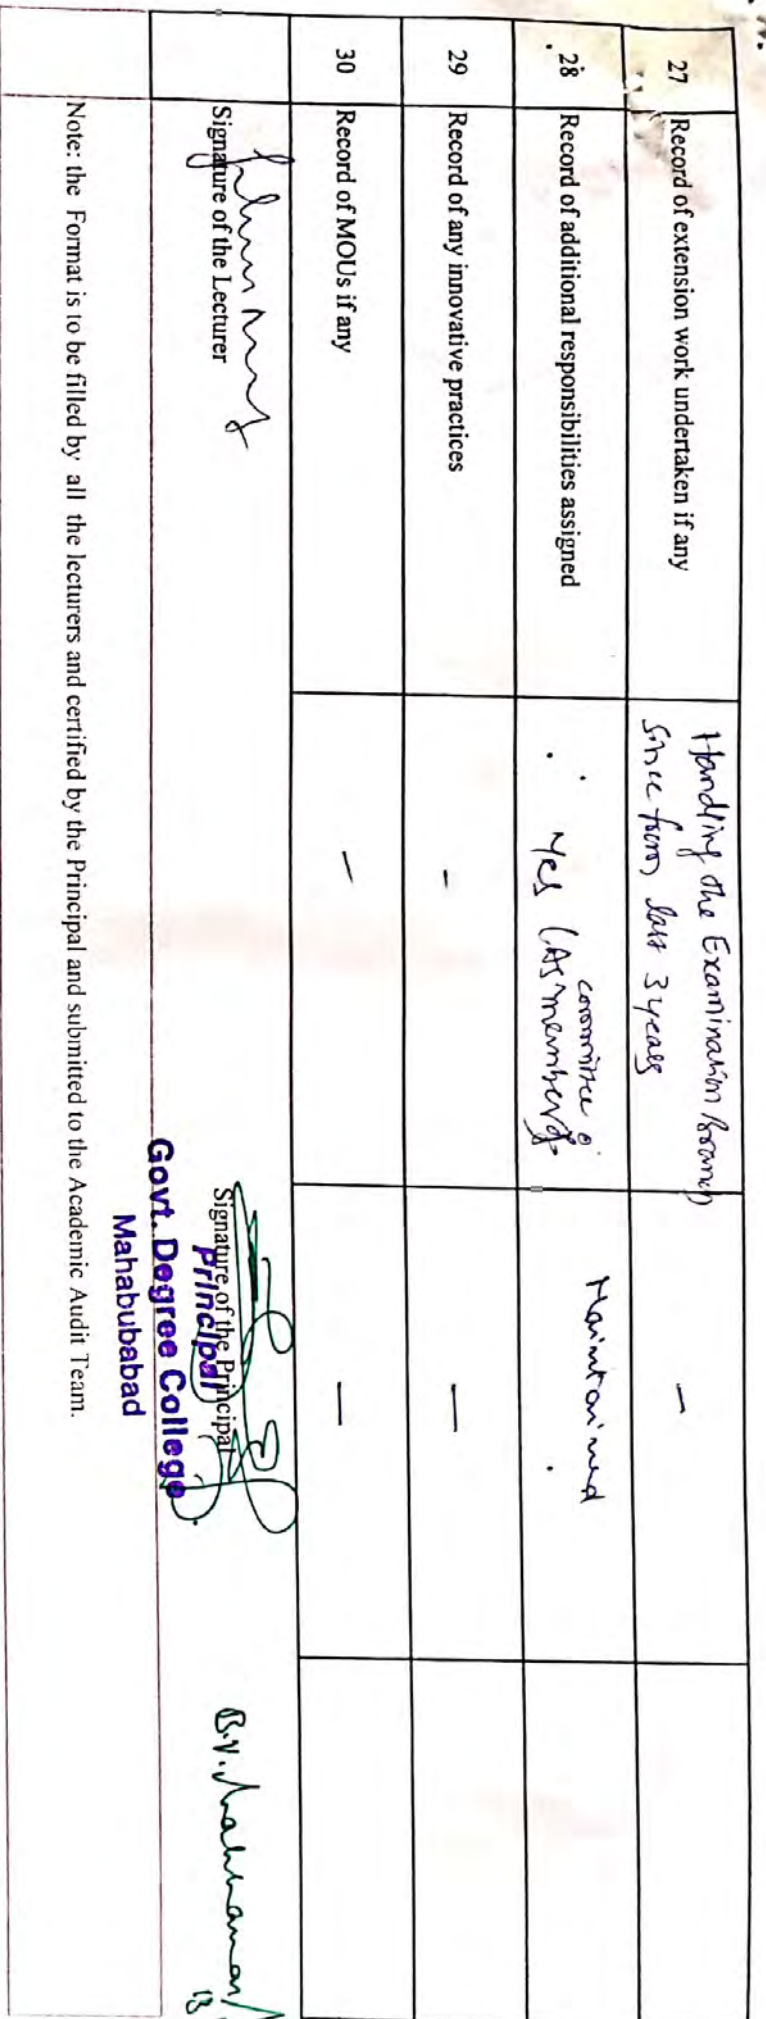 27 Record of extension work undertaken if any Handling the Examination Branch —
since from last 3 years
28 Record of additional responsibilities assigned Yes (As member of Maintained
committee
29 Record of any innovative practices - —
30 Record of MOUs if any - —
Signature of the Lecturer Signature of the Principal
Principal
Govt. Degree College
Mahabubabad
Note: the Format is to be filled by all the lecturers and certified by the Principal and submitted to the Academic Audit Team.